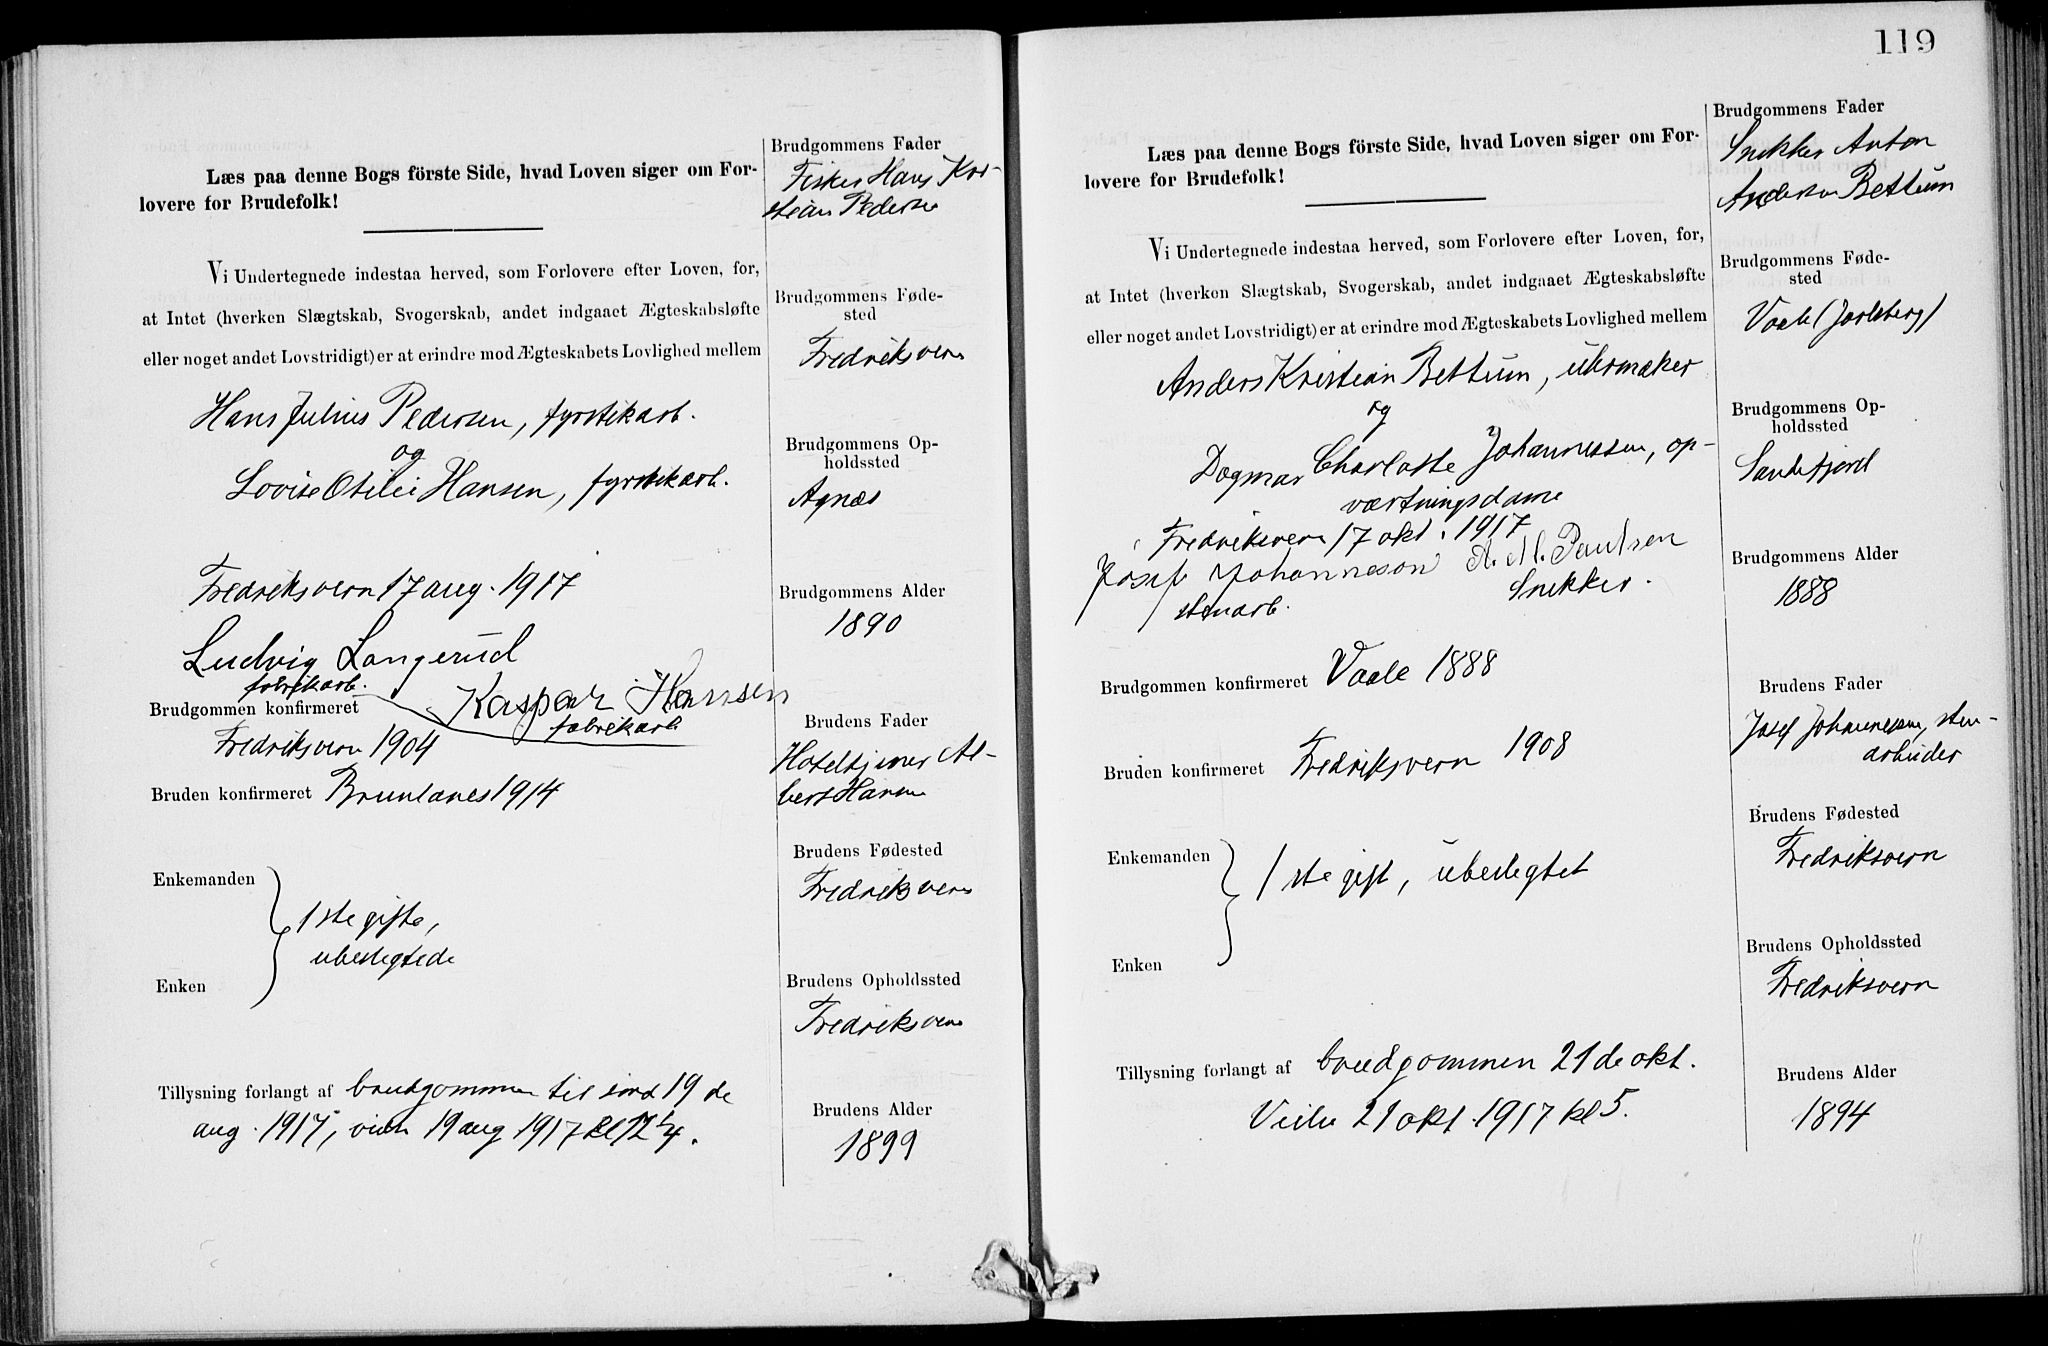 Læs paa denne Bogs förste Side, hvad Loven siger om For-
lovere for Brudefolk!
Vi Undertegnede indestaa herved, som Forlovere efter Loven, for,
at Intet (hverken Slægtskab, Svogerskab, andet indgaaet Ægteskabsløfte
eller noget andet Lovstridigt) er at erindre mod Ægteskabets Lovlighed mellem
Hans Julius Pedersen, fyrstikarb.
og
Lovise Otilie Hansen, fyrstikarb.
Fredriksvern 17 aug. 1917
Ludvig Langerud
fabrikarb.
Kaspar Hansen
fabrikarb.
Brudgommen konfirmeret
Fredriksvern 1904
Bruden konfirmeret Brunlanes 1914
Enkemanden
1ste gifte,
ubeslegtede
Enken
Tillysning forlangt af brudgommen til sönd 19 de
aug. 1917, viede 19 aug 1917 kl 12 1/4.
Brudgommens Fader
Fisker Hans Kri-
stian Pedersen
Brudgommens Føde-
sted
Fredriksvern
Brudgommens Op-
holdssted
Agnæs
Brudgommens Alder
1890
Brudens Fader
Hoteltjener Al-
bert Hansen
Brudens Fødested
Fredriksvern
Brudens Opholdssted
Fredriksvern
Brudens Alder
1899
119
Læs paa denne Bogs förste Side, hvad Loven siger om For-
lovere for Brudefolk!
Vi Undertegnede indestaa herved, som Forlovere efter Loven, for,
at Intet (hverken Slægtskab, Svogerskab, andet indgaaet Ægteskabsløfte
eller noget andet Lovstridigt) er at erindre mod Ægteskabets Lovlighed mellem
Anders Kristian Bettum, uhrmaker
og
Dagmar Charlotte Johannessen, op-
vartningsdame
Fredriksvern 17 okt. 1917
Josef Johanneson A. M. Paulsen
stenarb. Snekker.
Brudgommen konfirmeret Vaale 1888
Bruden konfirmeret Fredriksvern 1908
Enkemanden
1ste gift, ubeslegtet
Enken
Tillysning forlangt af brudgommen 21 de okt.
Viede 21 okt. 1917 kl 5.
Brudgommens Fader
Snekker Anton
Anderson Bettum
Brudgommens Føde-
sted
Vaale (Jarlsberg)
Brudgommens Op-
holdssted
Sandefjord
Brudgommens Alder
1888
Brudens Fader
Josef Johannessen, sten-
arbeider
Brudens Fødested
Fredriksvern
Brudens Opholdssted
Fredriksvern
Brudens Alder
1894